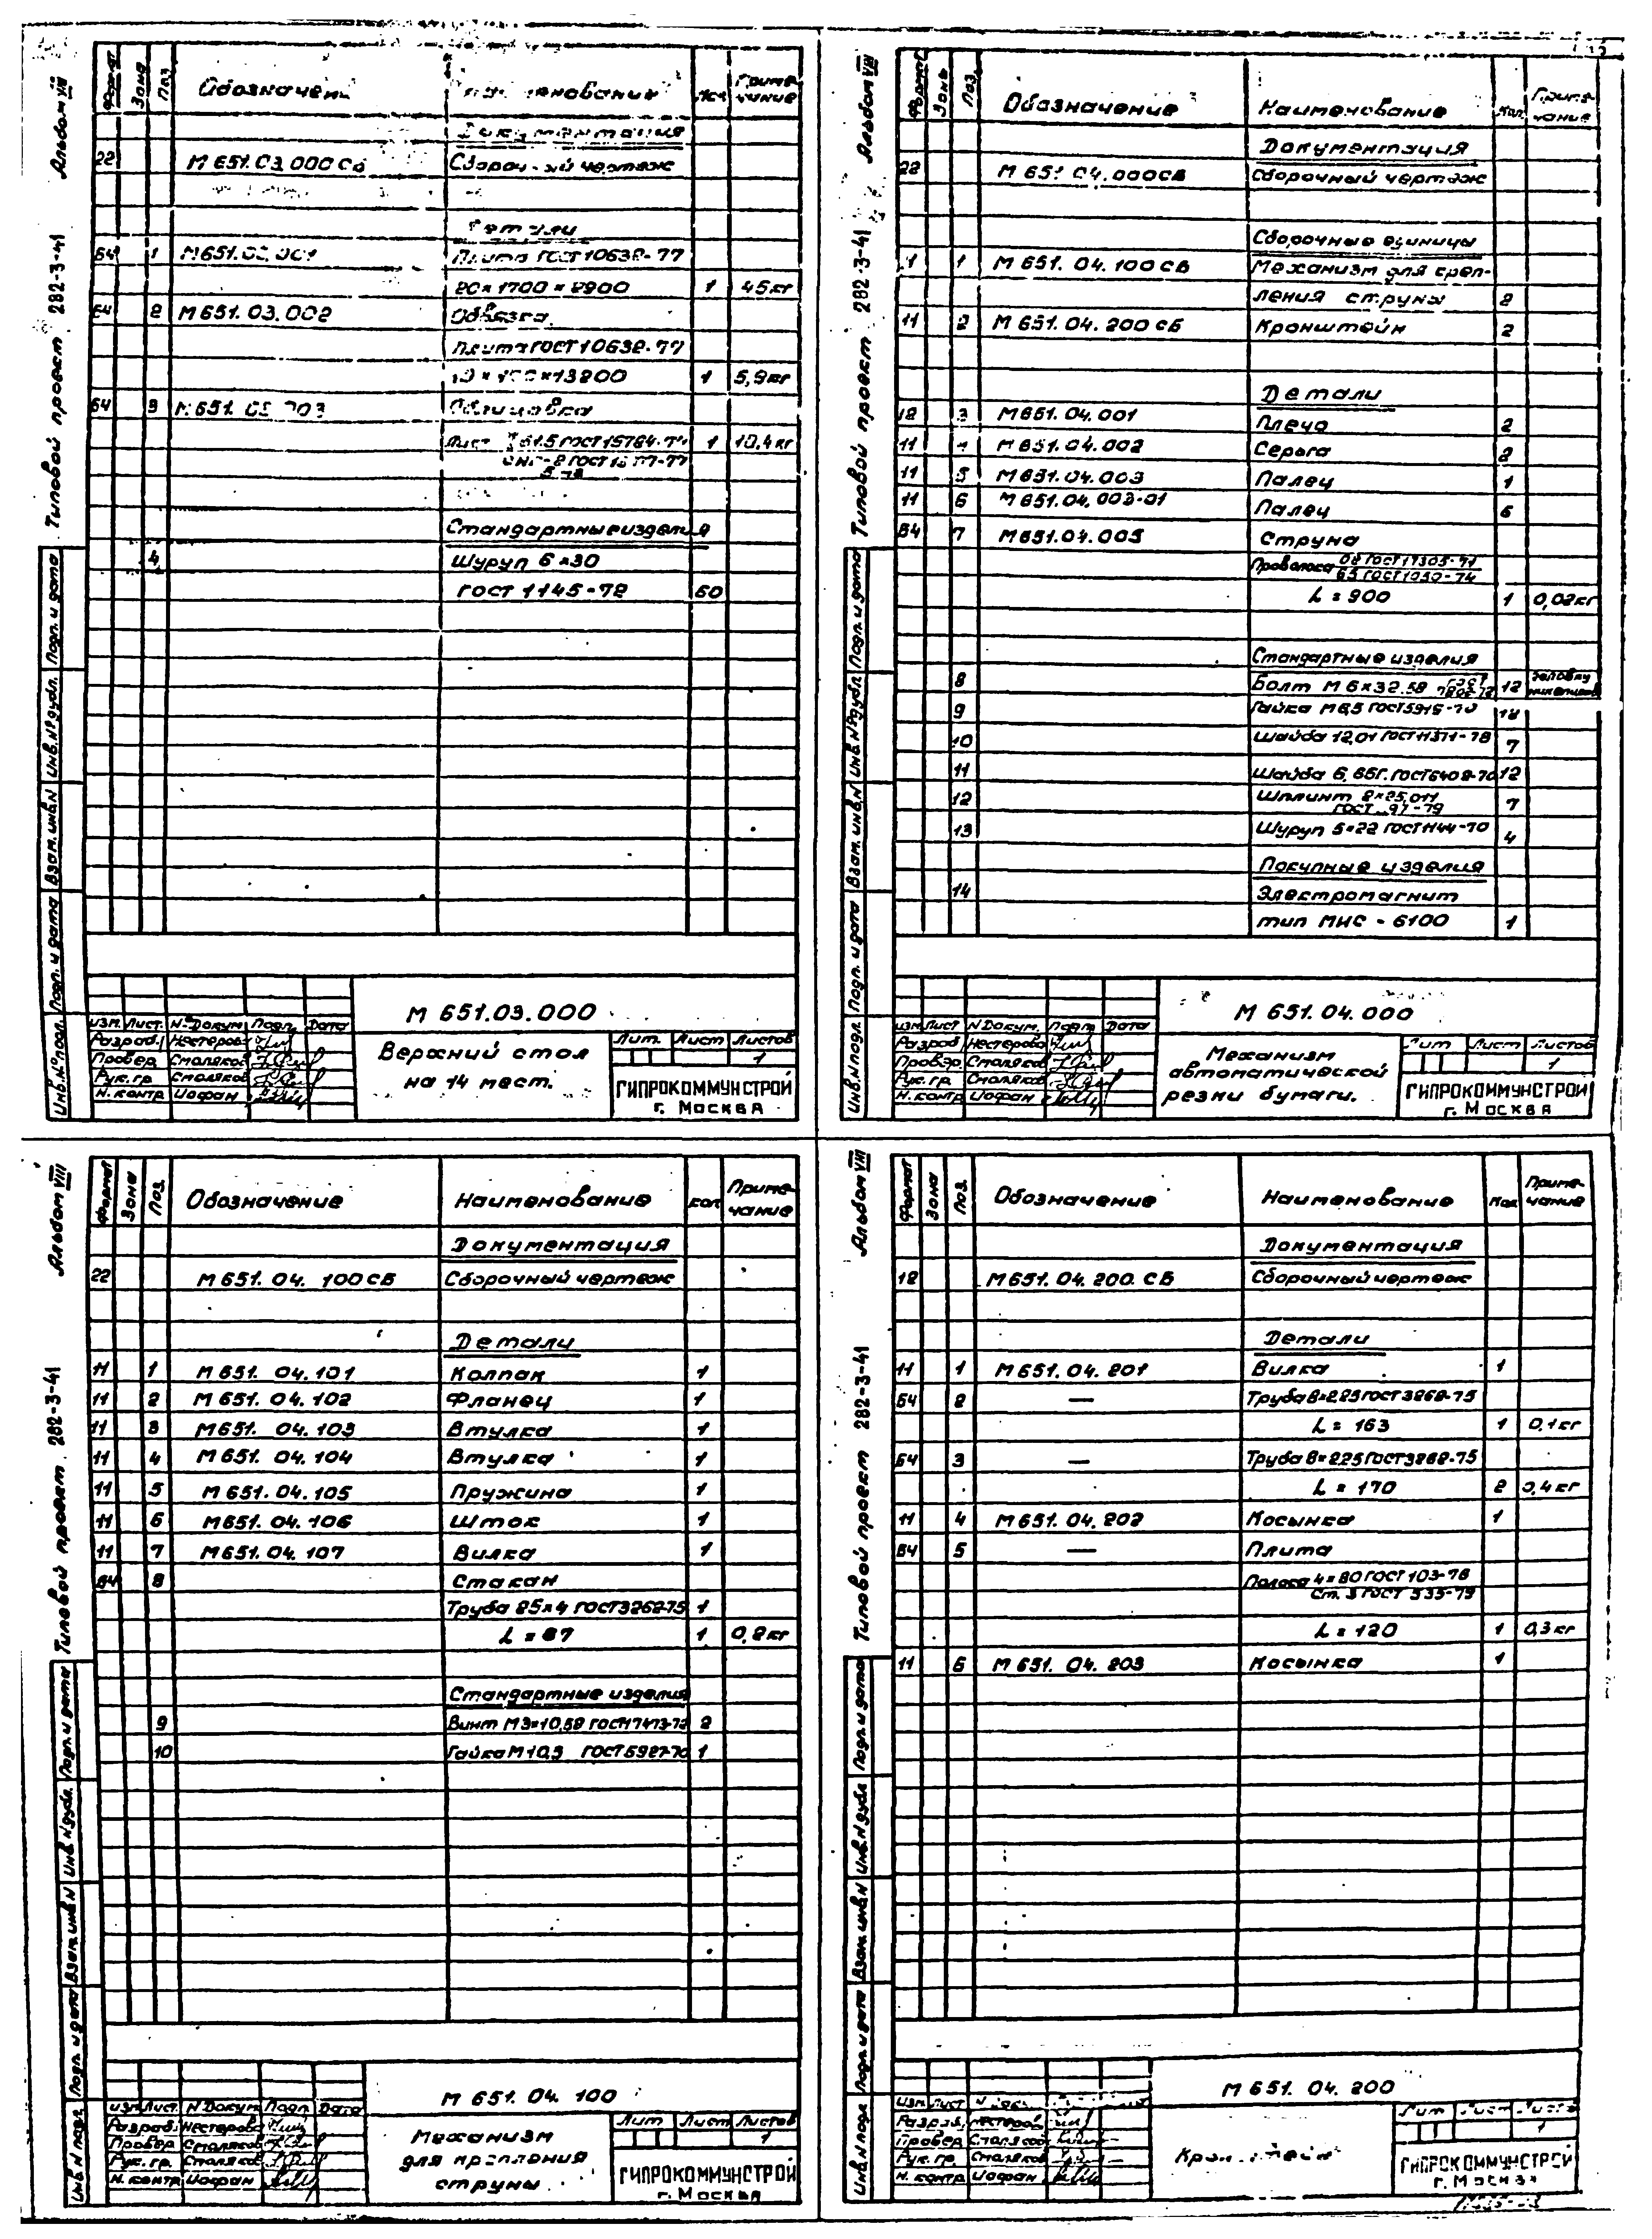 Альбом VIII
Типовой проект 282-3-41
Формат Зона Поз. Обозначен Кол. Приме-
чание
Документация
22 М 651.03.000 СБ Сборочный чертеж
Детали
Б4 1 М 651.03.001 Плита ГОСТ 10632-77
20 × 1700 × 2900 1 45 кг
Б4 2 М 651.03.002 Обвязка
Плита ГОСТ 10632-77
×13200 1 5,9 кг
Б4 3 Облицовка
Лист 1 10,4 кг
Стандартные изделия
4 Шуруп 6×30
ГОСТ 1145-72 60
Инв.№ подл. Подп. и дата Взам. инв.N Инв.№ дубл. Подп. и дата
М 651.03.000
Изм. Лист. №Докум Подп. Дата
Разраб. Нестерова
Провер. Смоляков
Рук. гр. Смоляков
Н. контр Иофан
Верхний стол
на 14 мест.
Лит. Лист Листов
1
ГИПРОКОММУНСТРОЙ
г. Москва
Альбом VIII
Типовой проект 282-3-41
Формат Зона Поз. Обозначение Наименование Кол. Приме-
чание
Документация
22 М 651.04.000СБ Сборочный чертеж
Сборочные единицы
1 М 651.04.100 СБ Механизм для креп-
ления струны 2
11 2 М 651.04.200 СБ Кронштейн 2
Детали
12 3 М 651.04.001 Плечо 2
11 М 651.04.002 Серьга 2
11 5 М 651.04.003 Палец 1
11 6 М 651.04.003-01 Палец 6
Б4 7 М 651.04.005 Струна
Проволока
65 ГОСТ 1050-74
L = 900 1 0,02 кг
Стандартные изделия
8 Болт М 6×32.58 12
9 Гайка М6,5 ГОСТ 5915-70
10 Шайба 12,01 ГОСТ 11371-78 7
11 Шайба 6, 65Г. ГОСТ 6402-70 12
12 Шплинт 2×25,011 7
13 Шуруп 5×22 ГОСТ 1144-70 4
Покупные изделия
14 Электромагнит
тип МИС - 6100 1
Инв.N подл. Подп. и дата Взам. инв.N Инв.№ дубл. Подп. и дата
М 651.04.000
Изм Лист NДокум. Подп Дата
Разраб Нестерова
Провер Смоляков
Рук. гр. Смоляков
Н. контр Иофан
Механизм
автоматической
резки бумаги.
Лит Лист Листов
1
ГИПРОКОММУНСТРОЙ
г. Москва
Альбом VIII
Типовой проект 282-3-41
Формат Зона Поз. Обозначение Наименование Кол Приме-
чание
Документация
22 М 651.04.100 СБ Сборочный чертеж
Детали
11 1 М 651.04.101 Колпак 1
11 2 М 651.04.102 Фланец 1
11 3 М 651.04.103 Втулка 1
11 4 М 651.04.104 Втулка 1
11 5 М 651.04.105 Пружина 1
11 6 М 651.04.106 Шток 1
11 7 М 651.04.107 Вилка 1
Б4 8 Стакан
Труба 25×4 ГОСТ 3262-75 1
L = 87 1 0,2 кг
Стандартные изделия
9 Винт М3×10,58 ГОСТ 17473-72 2
10 Гайка М10,5 ГОСТ 5927-70 1
Инв.N подл. Подп. и дата Взам. инв.N Инв.N дубл. Подп. и дата
М 651.04.100
Изм Лист. NДокум Подп Дата
Разраб. Нестерова
Провер Смоляков
Рук. гр. Смоляков
Н. контр Иофан
Механизм
для крепления
струны
Лит Лист Листов
1
ГИПРОКОММУНСТРОЙ
г. Москва
Альбом VIII
Типовой проект 282-3-41
Формат Зона Поз. Обозначение Наименование Кол Приме-
чание
Документация
12 М 651.04.200 СБ Сборочный чертеж
Детали
11 1 М 651.04.201 Вилка 1
Б4 2 — Труба 8×2,25 ГОСТ 3262-75
L = 163 1 0,1 кг
Б4 3 — Труба 8×2,25 ГОСТ 3262-75
L = 170 2 0,4 кг
11 4 М 651.04.202 Косынка 1
Б4 5 — Плита
Полоса 4×80 ГОСТ 103-76
Ст. 3 ГОСТ 535-79
L = 120 1 0,3 кг
11 6 М 651.04.203 Косынка 1
Инв.N подл Подп. и дата Взам. инв.N Инв.N дубл Подп. и дата
М 651.04.200
Изм Лист
Разраб. Нестерова
Провер Смоляков
Рук. гр. Смоляков
Н. контр Иофан
Кронштейн
Лит Лист Листов
1
ГИПРОКОММУНСТРОЙ
г. Москва